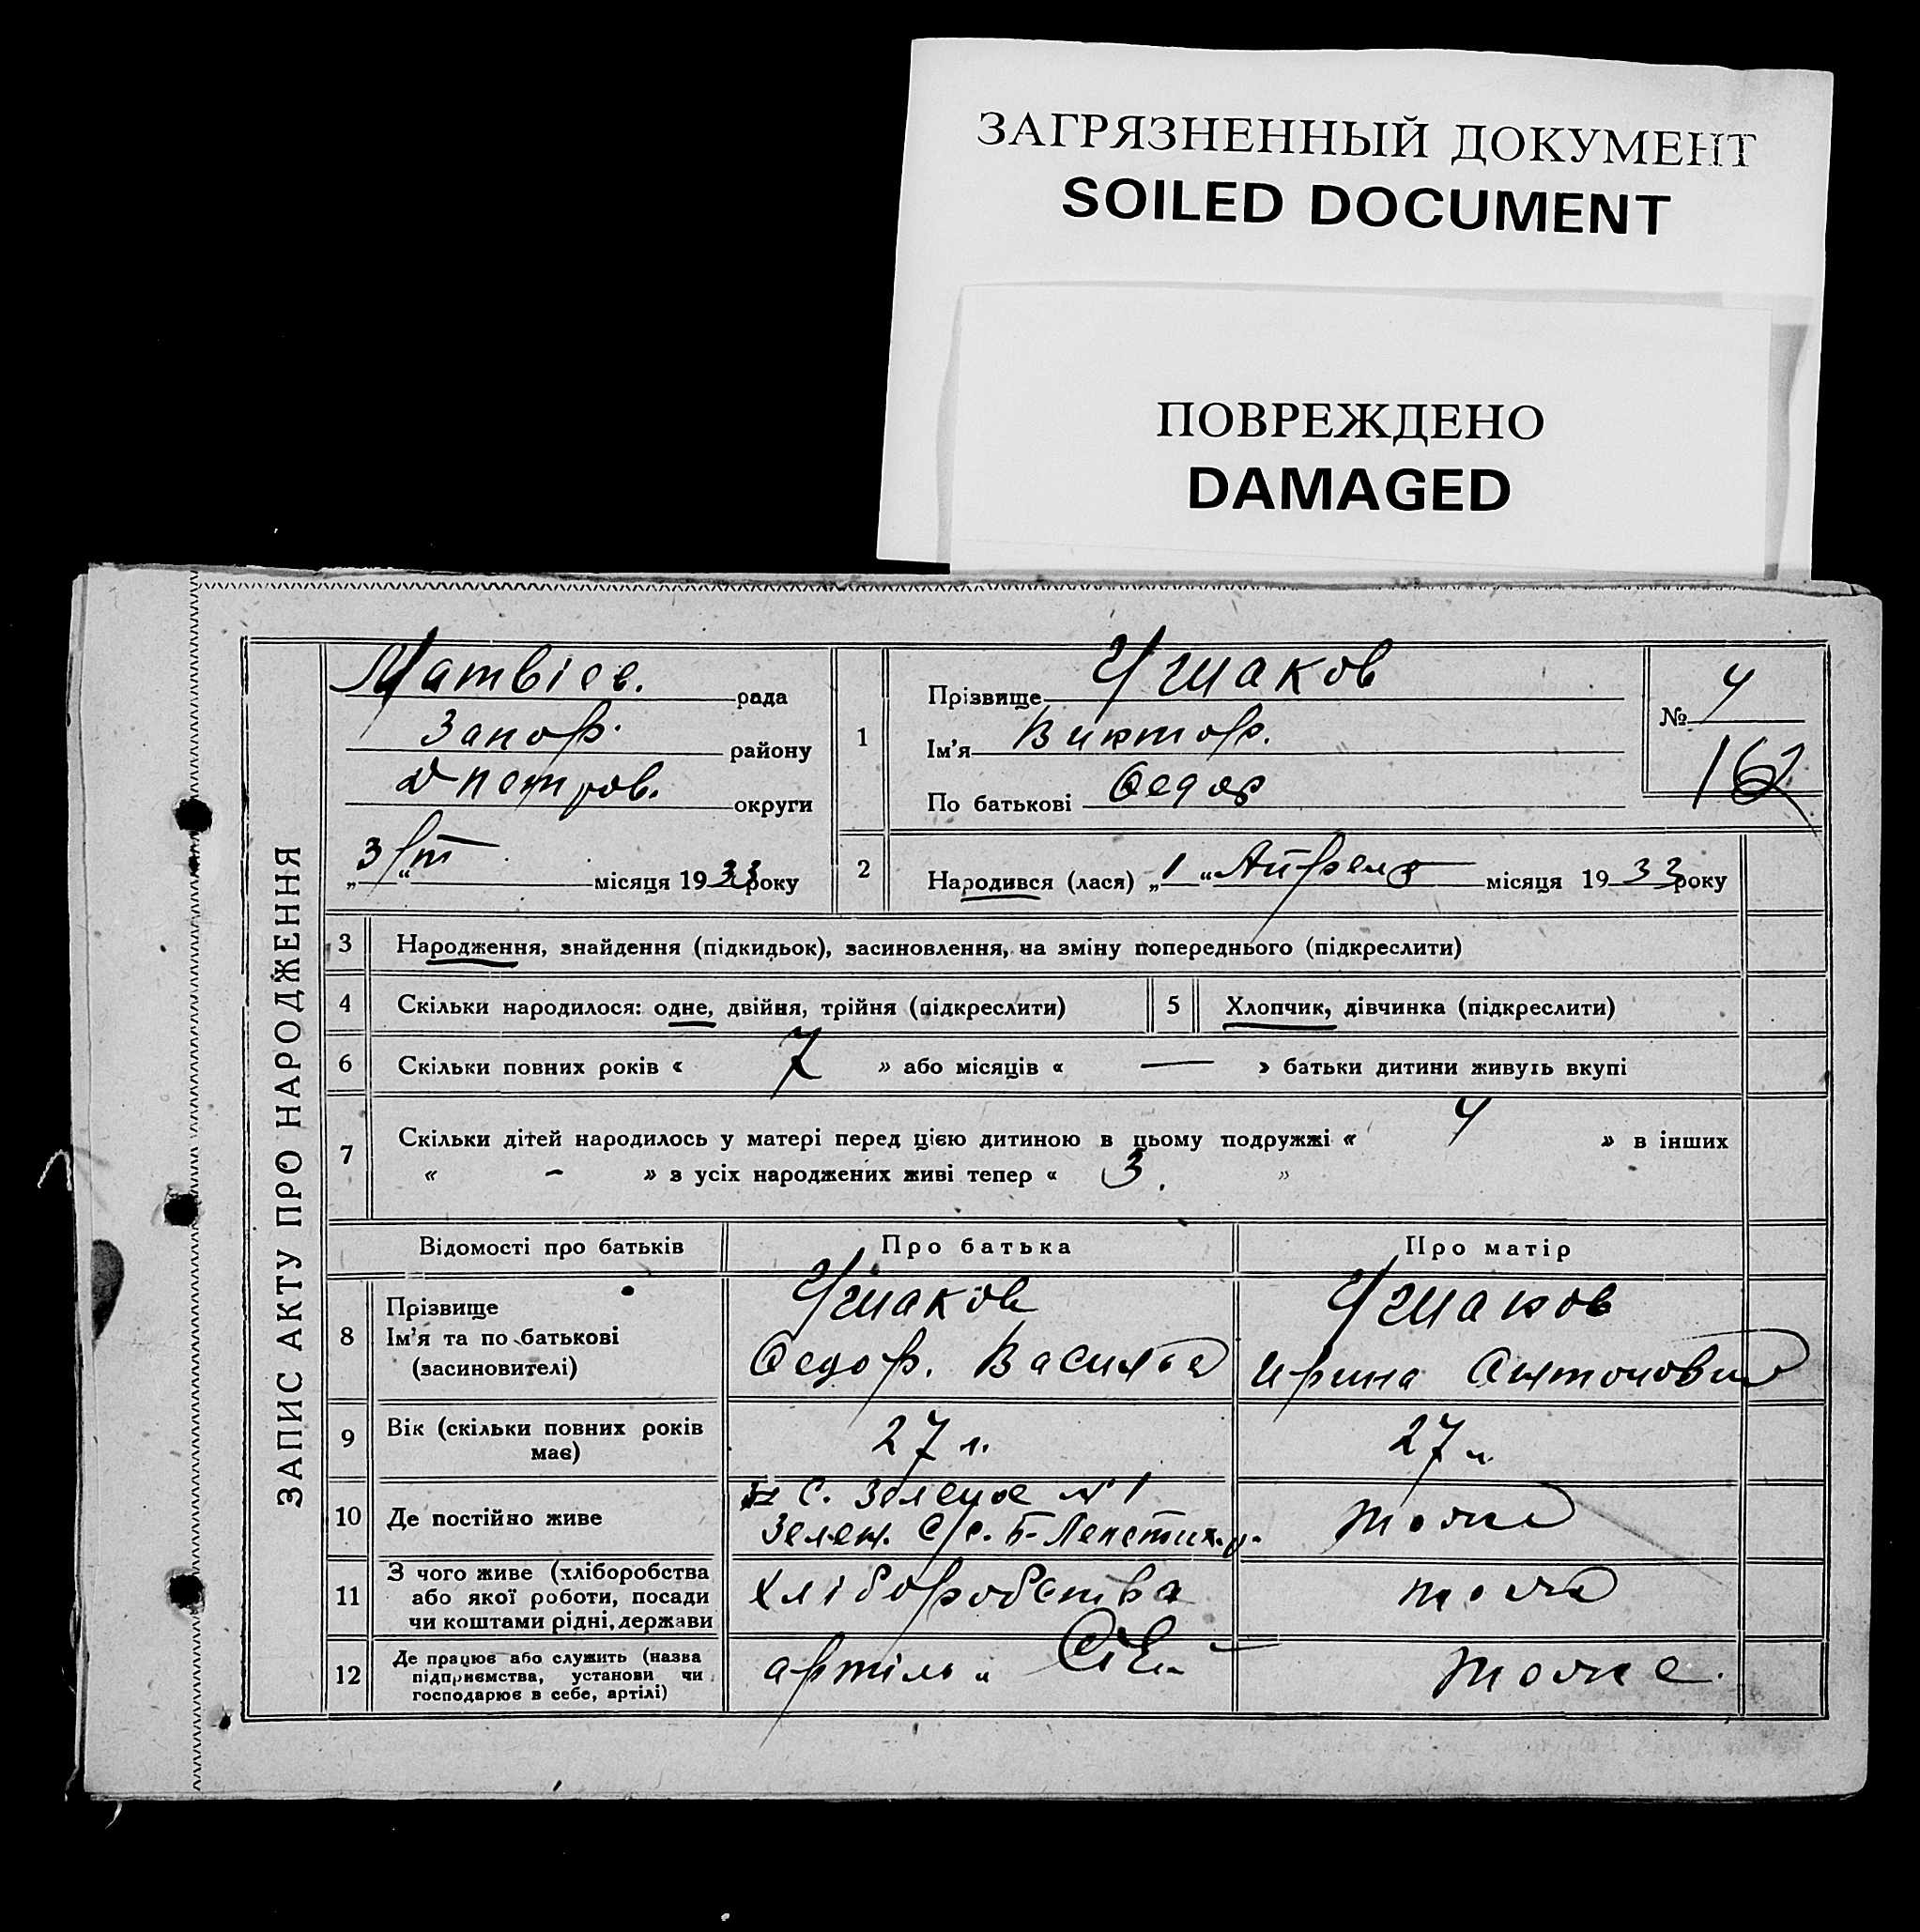 ЗАГРЯЗНЕННЫЙ ДОКУМЕНТ
SOILED DOCUMENT
ПОВРЕЖДЕНО
DAMAGED
ЗАПИС АКТУ ПРО НАРОДЖЕННЯ
Матвієв. рада
Запор. району
Дпетров. округи
„3“ місяця 1933 року
1
Прізвище Ушаков
Ім'я Виктор.
По батькові Федор
№ 4
162
2 Народився (лася) „1“ Апреля місяця 1933 року
3 Народження, знайдення (підкидьок), засиновлення, на зміну попереднього (підкреслити)
4 Скільки народилося: одне, двійня, трійня (підкреслити) 5 Хлопчик, дівчинка (підкреслити)
6 Скільки повних років « 7 » або місяців « — » батьки дитини живуть вкупі
7 Скільки дітей народилось у матері перед цією дитиною в цьому подружжі « 4 » в інших
« – » з усіх народжених живі тепер « 3. »
Відомості про батьків Про батька Про матір
8 Прізвище Ушаков Ушаков
Ім'я та по батькові Федор. Василье Ирина Антонов
(засиновителі)
9 Вік (скільки повних років має) 27 л. 27 л
10 Де постійно живе с. Зеленое №1 тоже
Зелен. С/с. Б-Лепетих. р.
11 З чого живе (хліборобства або якої роботи, посади чи коштами рідні, держави хліборобства тоже
12 Де працює або служить (назва підприємства, установи чи господарює в себе, артілі) артіль „ тоже.